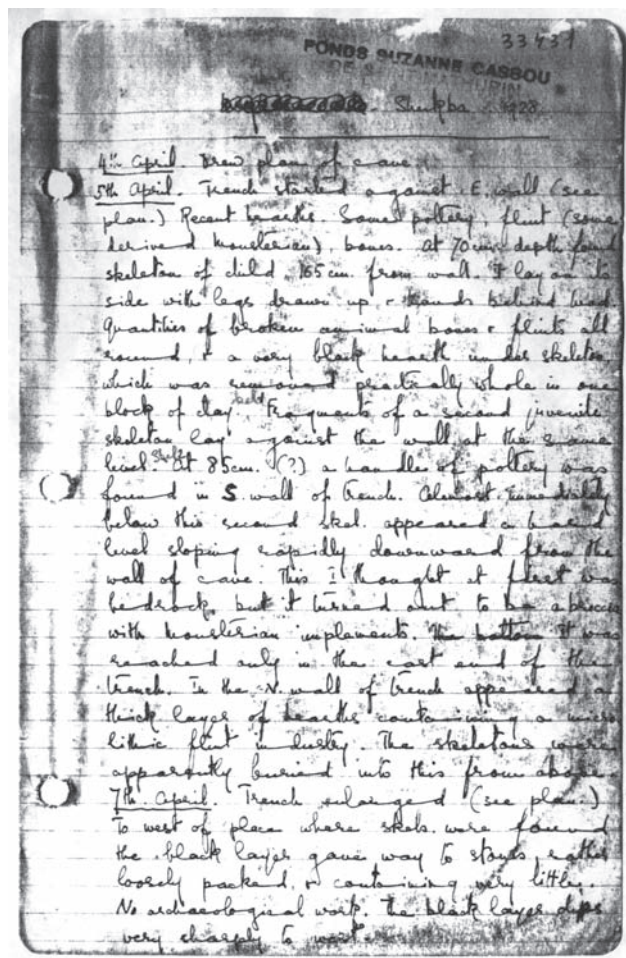 33431
FONDS SUZANNE CASSOU
DE SAINT-MATHURIN
Shukba. 1928
4th April. Drew plan of cave
5th April. Trench started against E. wall (see
plan.) Recent hearths. Some pottery, flint (some
derived Mousterian), bones. At 70 cm. depth found
skeleton of child, 165 cm. from wall. It lay on its
side with legs drawn up & hands behind head.
Quantities of broken animal bones & flints all
round, & a very black hearth under skeleton,
which was removed practically whole in one
block of clay. Fragments of a second juvenile
skeleton lay against the wall at the same
level. At 85 cm. (?) a handle of pottery was
found in S. wall of trench. Almost immediately
below this second skel. appeared a hard
level sloping rapidly downward from the
wall of cave. This I thought at first was
bedrock, but it turned out to be a breccia
with Mousterian implements. It was
reached only in the east end of the
trench. In the N. wall of trench appeared a
thick layer of hearths containing a micro
lithic flint industry. The skeletons were
apparently buried into this from above.
7th April. Trench enlarged (see plan.)
To west of place where skels. were found
the black layer gave way to stones, rather
loosely packed, & containing very little.
No archaeological work. The black layer dips
very sharply to west.